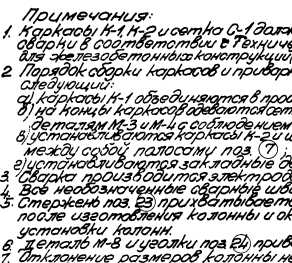 Примечания:
1. Каркасы К-1, К-2 и сетка С-1 долж
сварки в соответствии с Техниче
для железобетонных конструкций
2. Порядок сборки каркасов и привар
следующий:
а) каркасы К-1 объединяются в прос
б) на концы каркасов одеваются сет
деталям М-3 и М-4 с соблюдением
в) устанавливаются каркасы К-2 и ш
между собой полосами поз. 7;
г) устанавливаются закладные де
3. Сварка производится электрод
4. Все необозначенные сварные шв
5. Стержень поз. 23 прихватывает
после изготовления колонны и ок
установки колонн.
6. Деталь М-8 и уголки поз. 24 прива
7. Отклонение размеров колонны не